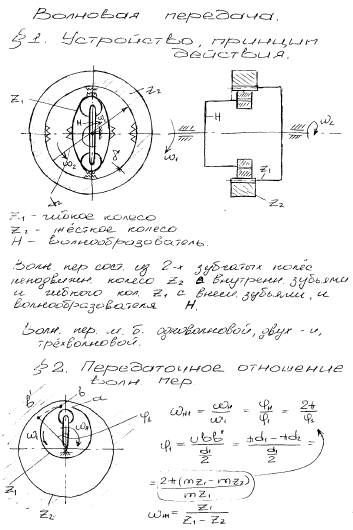 Волновая передача.
§1. Устройство, принцип
действия.
Z₁
Z₂
H
ω₁
H
ω₂
Z₁
Z₂
Z₁ - гибкое колесо
Z₂ - жёсткое колесо
H - волнообразователь.
Волн. пер сост. из 2-х зубчатых колёс
неподвижн. колесо Z₂ с внутренн. зубьями
и гибкого кол. Z₁ с внешн. зубьями, и
волнообразователя H.
Волн. пер. м. б. одноволновой, двух-и,
трёхволновой.
§2. Передаточное отношение
волн. пер.
b' b a
φ₁
Z₁
Z₂
= ω_H / ω₁ = φ_H / φ₁ = 2π / φ₁
φ₁ = ∪bb' / (d₁/2) = (πd₁ - πd₂) / (d₁/2) =
= 2π(mz₁ - mz₂) / mz₁
= Z₁ / (Z₁ - Z₂)